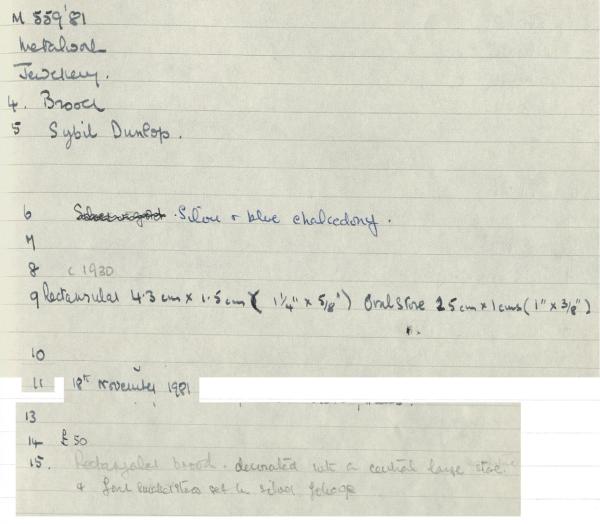 M 559'81
Metalwork
Jewellery.
4. Brooch
5 Sybil Dunlop.
6 Silver + blue chalcedony.
7
8 c 1930
9 Rectangular 4.3 cm x 1.5 cm ( 1¼" x 5/8" ) Oval stone 2.5 cm x 1 cms ( 1" x 3/8" )
10
11 18th November 1981
13
14 £50
15. Rectangular brooch. decorated with a central large stone
& four set in silver foliage